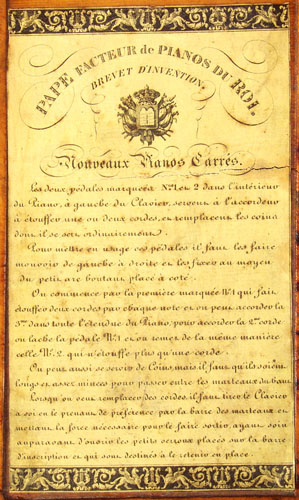 PAPE, FACTEUR de PIANOS DU ROI.
BREVET D'INVENTION.
Nouveaux Pianos Carrés.
Les deux pédales marquées Nos 1 et 2 dans l'intérieur
du Piano, à gauche du Clavier, servent à l'accordeur
à étouffer une ou deux cordes et remplacent les coins
dont il se sert ordinairement.
Pour mettre en usage ces pédales il faut les faire
mouvoir de gauche à droite et les fixer au moyen
du petit arc boutant placé à côté.
On commence par la première marquée No 1 qui fait
étouffer deux cordes par chaque note et on peut accorder la
3me dans toute l'étendue du Piano; pour accorder la 2me corde
on lache la pédale No 1 et on tourne de la même manière
celle No 2. qui n'étouffe plus qu'une corde.
On peut aussi se servir de Coins, mais il faut qu'ils soient
longs et assez minces pour passer entre les marteaux du haut.
Lorsqu'on veut remplacer des cordes il faut tirer le Clavier
à soi en le prenant de préférence par la barre des marteaux et
mettant la force nécessaire pour le faire sortir, ayant soin
auparavant d'ouvrir les petits verroux placés sur la barre
d'inscription et qui sont destinés à le retenir en place.